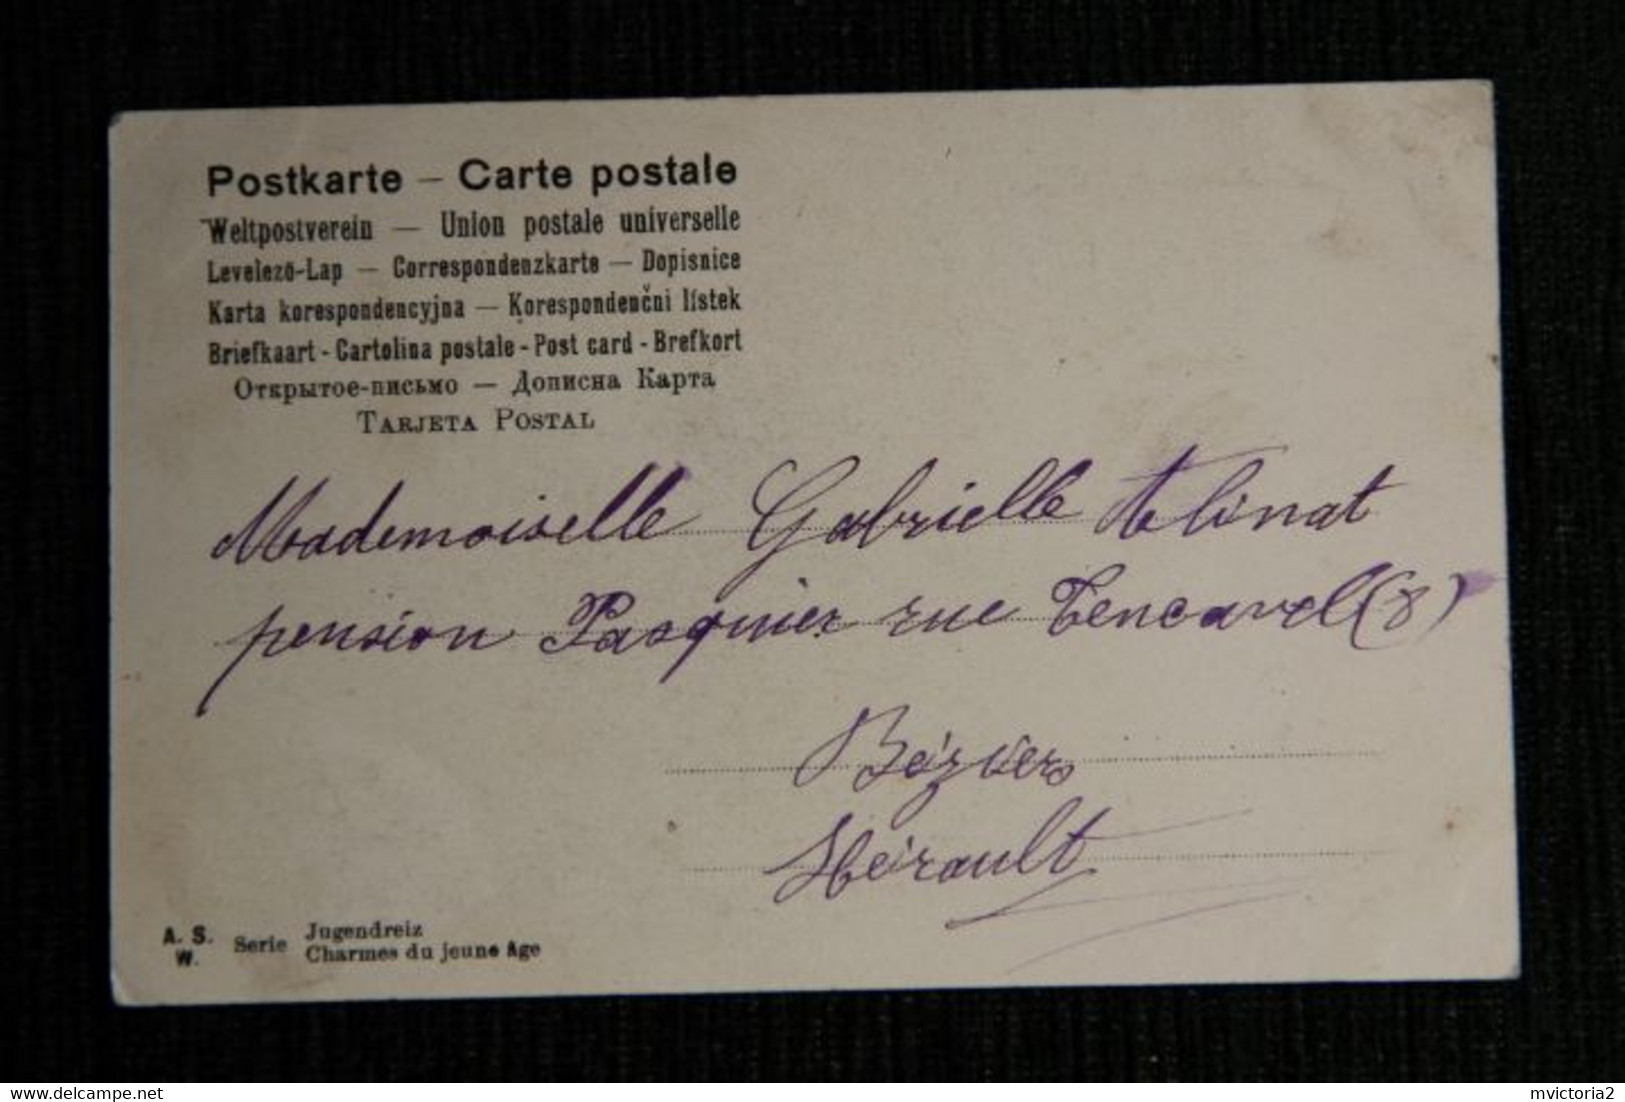 Postkarte – Carte postale
Weltpostverein — Union postale universelle
Levelező-Lap — Correspondenzkarte — Dopisnice
Karta korespondencyjna — Korespondenčni lístek
Briefkaart - Cartolina postale - Post card - Brefkort
Открытое-письмо — Дописна Карта
TARJETA POSTAL
Mademoiselle Gabrielle
pension Pasquier rue Tencavel (8)
Béziers
Hérault
A. S. W. Serie Jugendreiz
Charmes du jeune Age
delcampe.net
mvictoria2